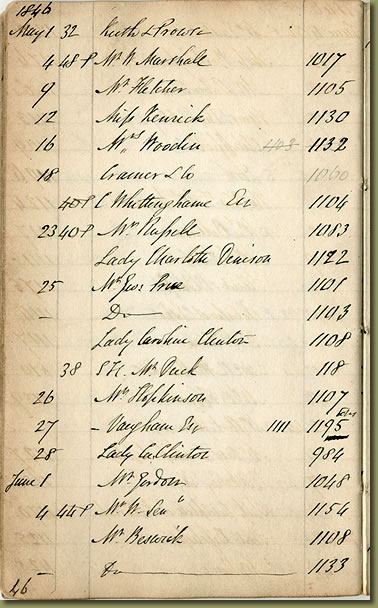 1846
May 1 32 Keith & Prowse
4 48 P Mr W Marshall 1017
9 Mr Fletcher 1105
12 Miss Kenrick 1130
16 Mrs Woodin 1132
18 Cramer & Co 1060
40 P C Whittinghame Esq 1104
23 40 P Mr Russell 1083
Lady Charlotte Denison 1122
25 Mr Geo: 1101
— Do 1193
Lady Caroline Clinton 1108
38 Mr Puck 118
26 Mr Hopkinson 1107
27 – Vaugham Esq 1111 1195
28 Lady Ca. Clinton 984
June 1 Mr Gordon 1048
4 44 P Mr W. 1154
Mr Beswick 1108
— Do 1133
46